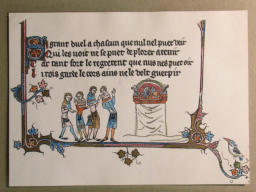 A grant duel a chascun que nul nel puet veir
Qui les voit ne se puet de plorer atenir
car tant fort le regretent que nus nes puet oir
i rois garde le cors ains ne le volt guerpir